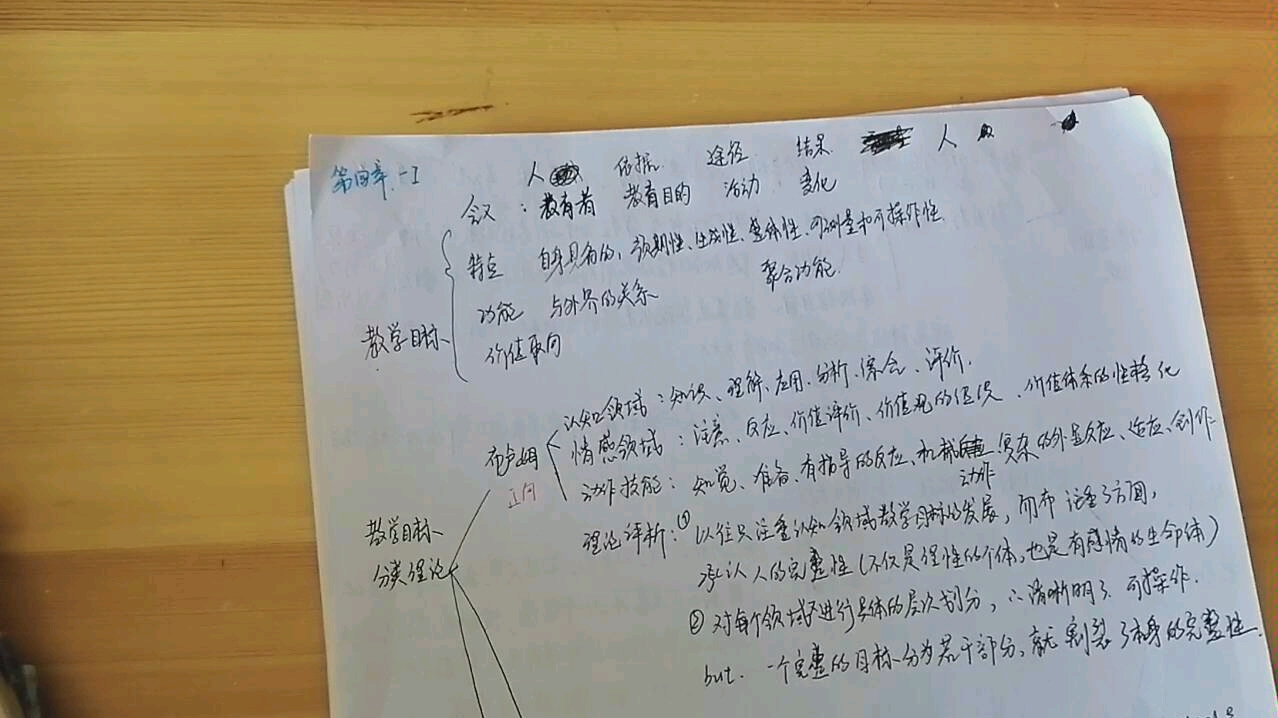 第四章.-1
人 依据 途径 结果 人
含义：教育者 教育目的 活动 变化
特点 自身具有的，预期性、生成性、整体性、可测量和可操作性
功能 与外界的关系 聚合功能
价值取向
教学目标
布卢姆 认知领域：知识、理解、应用、分析、综合、评价.
情感领域：注意、反应、价值评价、价值观的组织、价值体系的性格化
正向 动作技能：知觉、准备、有指导的反应、机械动作、复杂的外显反应、适应、创作
教学目标
分类理论
理论评析：① 以往只注重认知领域教学目标的发展，而布注重3方面，
承认人的完整性（不仅是理性的个体，也是有感情的生命体）
② 对每个领域又进行具体的层次划分，∴清晰明了 可操作.
but. 一个完整的目标分为若干部分，就割裂了本身的完整性.